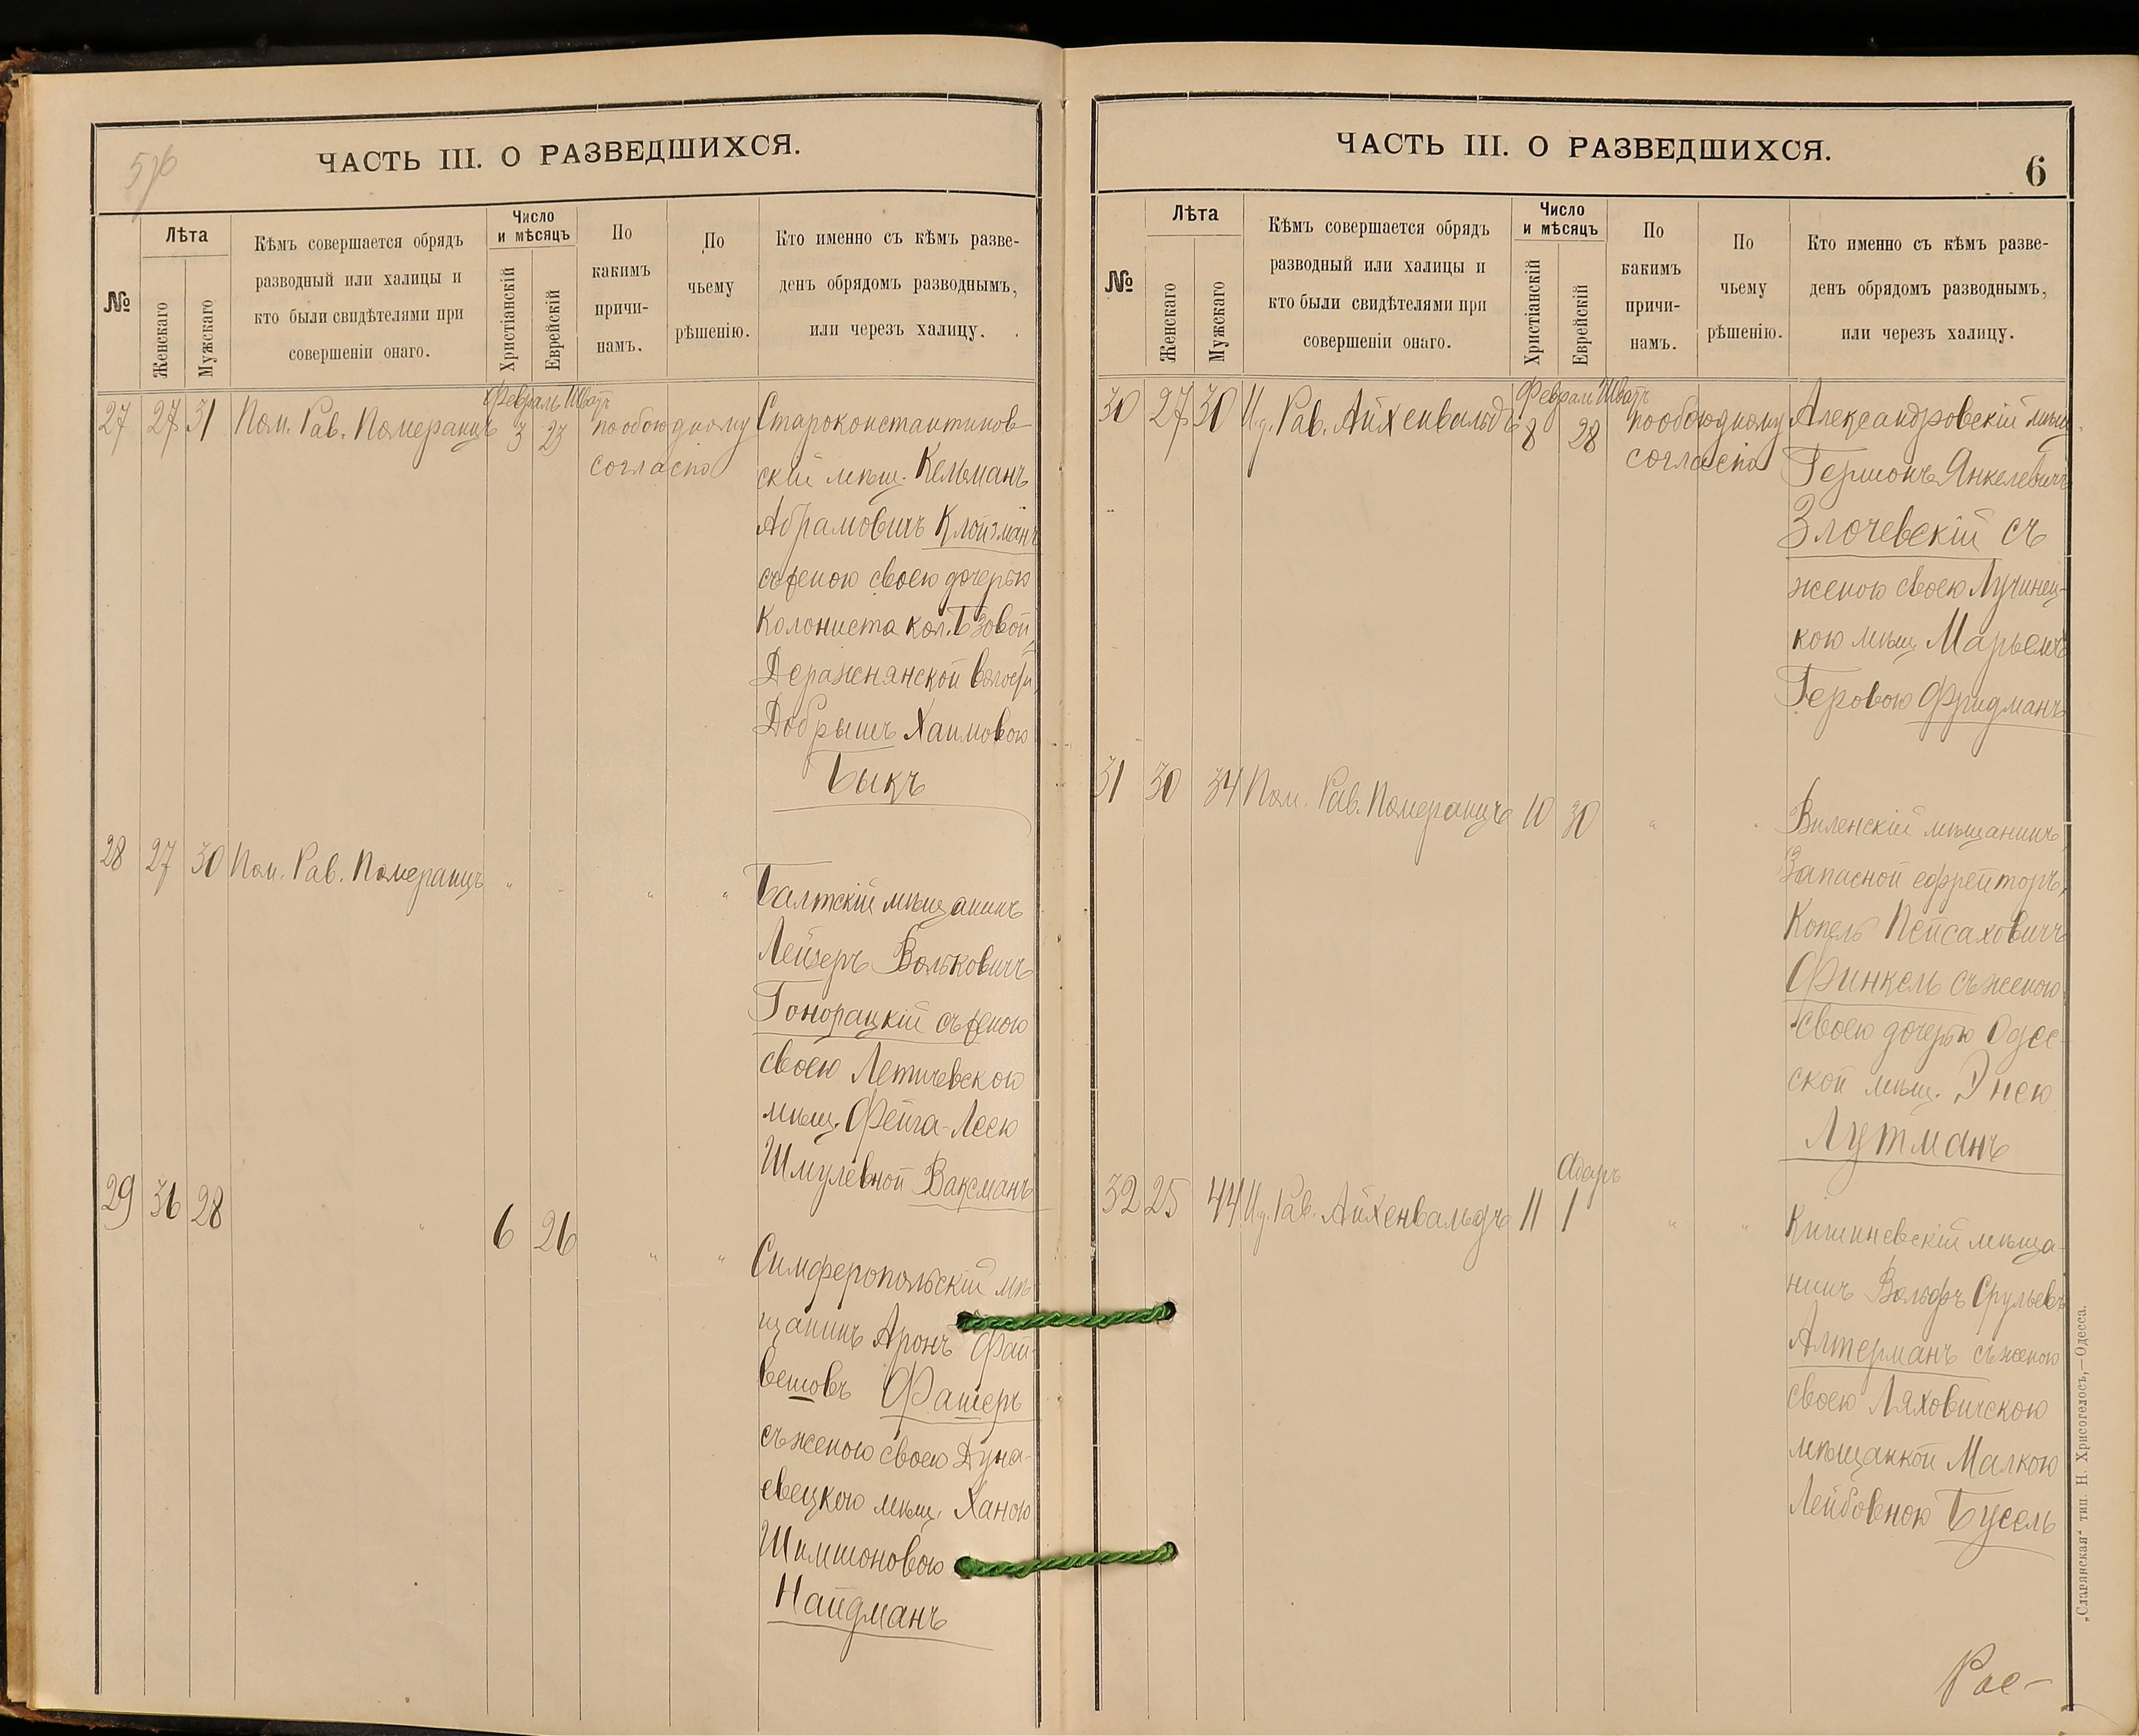 5/6
ЧАСТЬ III. О РАЗВЕДШИХСЯ.
№
Лѣта
Женскаго
Мужскаго
Кѣмъ совершается обрядъ
разводный или халицы и
кто были свидѣтелями при
совершеніи онаго.
Число
и мѣсяцъ
Христіанскій
Еврейскій
По
какимъ
причи-
намъ.
По
чьему
рѣшенію.
Кто именно съ кѣмъ разве-
денъ обрядомъ разводнымъ,
или черезъ халицу.
Февраль Шватъ
27 27 31 Пом. Рав. Померанцъ 3 23 по обоюдному
согласію
Староконстантинов-
скій мѣщ. Кельманъ
Абрамовичъ Клойзманъ
съ женою своею дочерью
Колониста кол. Бзовой,
Деражнянской волости,
Добрышъ Хаимовою
Быкъ
28 27 30 Пом. Рав. Померанцъ " " " "
Балтскій мѣщанинъ
Лейзеръ Вольковичъ
Гонорацкій съ женою
своею Летичевскою
мѣщ. Фейга-Леею
Шмулевной Ваксманъ
29 36 28 " 6 26 " "
Симферопольскій мѣ-
щанинъ Аронъ Фай-
вешовъ Фашеръ
съ женою своею Дуна-
евецкою мѣщ. Ханою
Шимшоновою
Найдманъ
ЧАСТЬ III. О РАЗВЕДШИХСЯ.
6
№
Лѣта
Женскаго
Мужскаго
Кѣмъ совершается обрядъ
разводный или халицы и
кто были свидѣтелями при
совершеніи онаго.
Число
и мѣсяцъ
Христіанскій
Еврейскій
По
какимъ
причи-
намъ.
По
чьему
рѣшенію.
Кто именно съ кѣмъ разве-
денъ обрядомъ разводнымъ,
или черезъ халицу.
Феврал Шватъ
30 27 30 И.д. Рав. Айхенвальдъ 8 28 по обоюдному
согласію
Александровскій мѣщ.
Гершонъ Янкелевичъ
Злочевскій съ
женою своею Лучинец-
кою мѣщ. Марьемъ
Геровою Фридманъ
31 30 34 Пом. Рав. Померанцъ 10 30 " "
Виленскій мѣщанинъ,
Запасной ефрейторъ,
Копель Пейсаховичъ
Финкель съ женою
своею дочерью Одес-
ской мѣщ. Энею
Лутманъ
Адаръ
32 25 44 И.д. Рав. Айхенвальдъ 11 1 " "
Кишиневскій мѣща-
нинъ Вольфъ Срулевъ
Алтерманъ съ женою
своею Ляховичскою
мѣщанкой Малкою
Лейбовною Бусель
Рас-
„Славянская“ тип. Н. Хрисогелосъ,—Одесса.